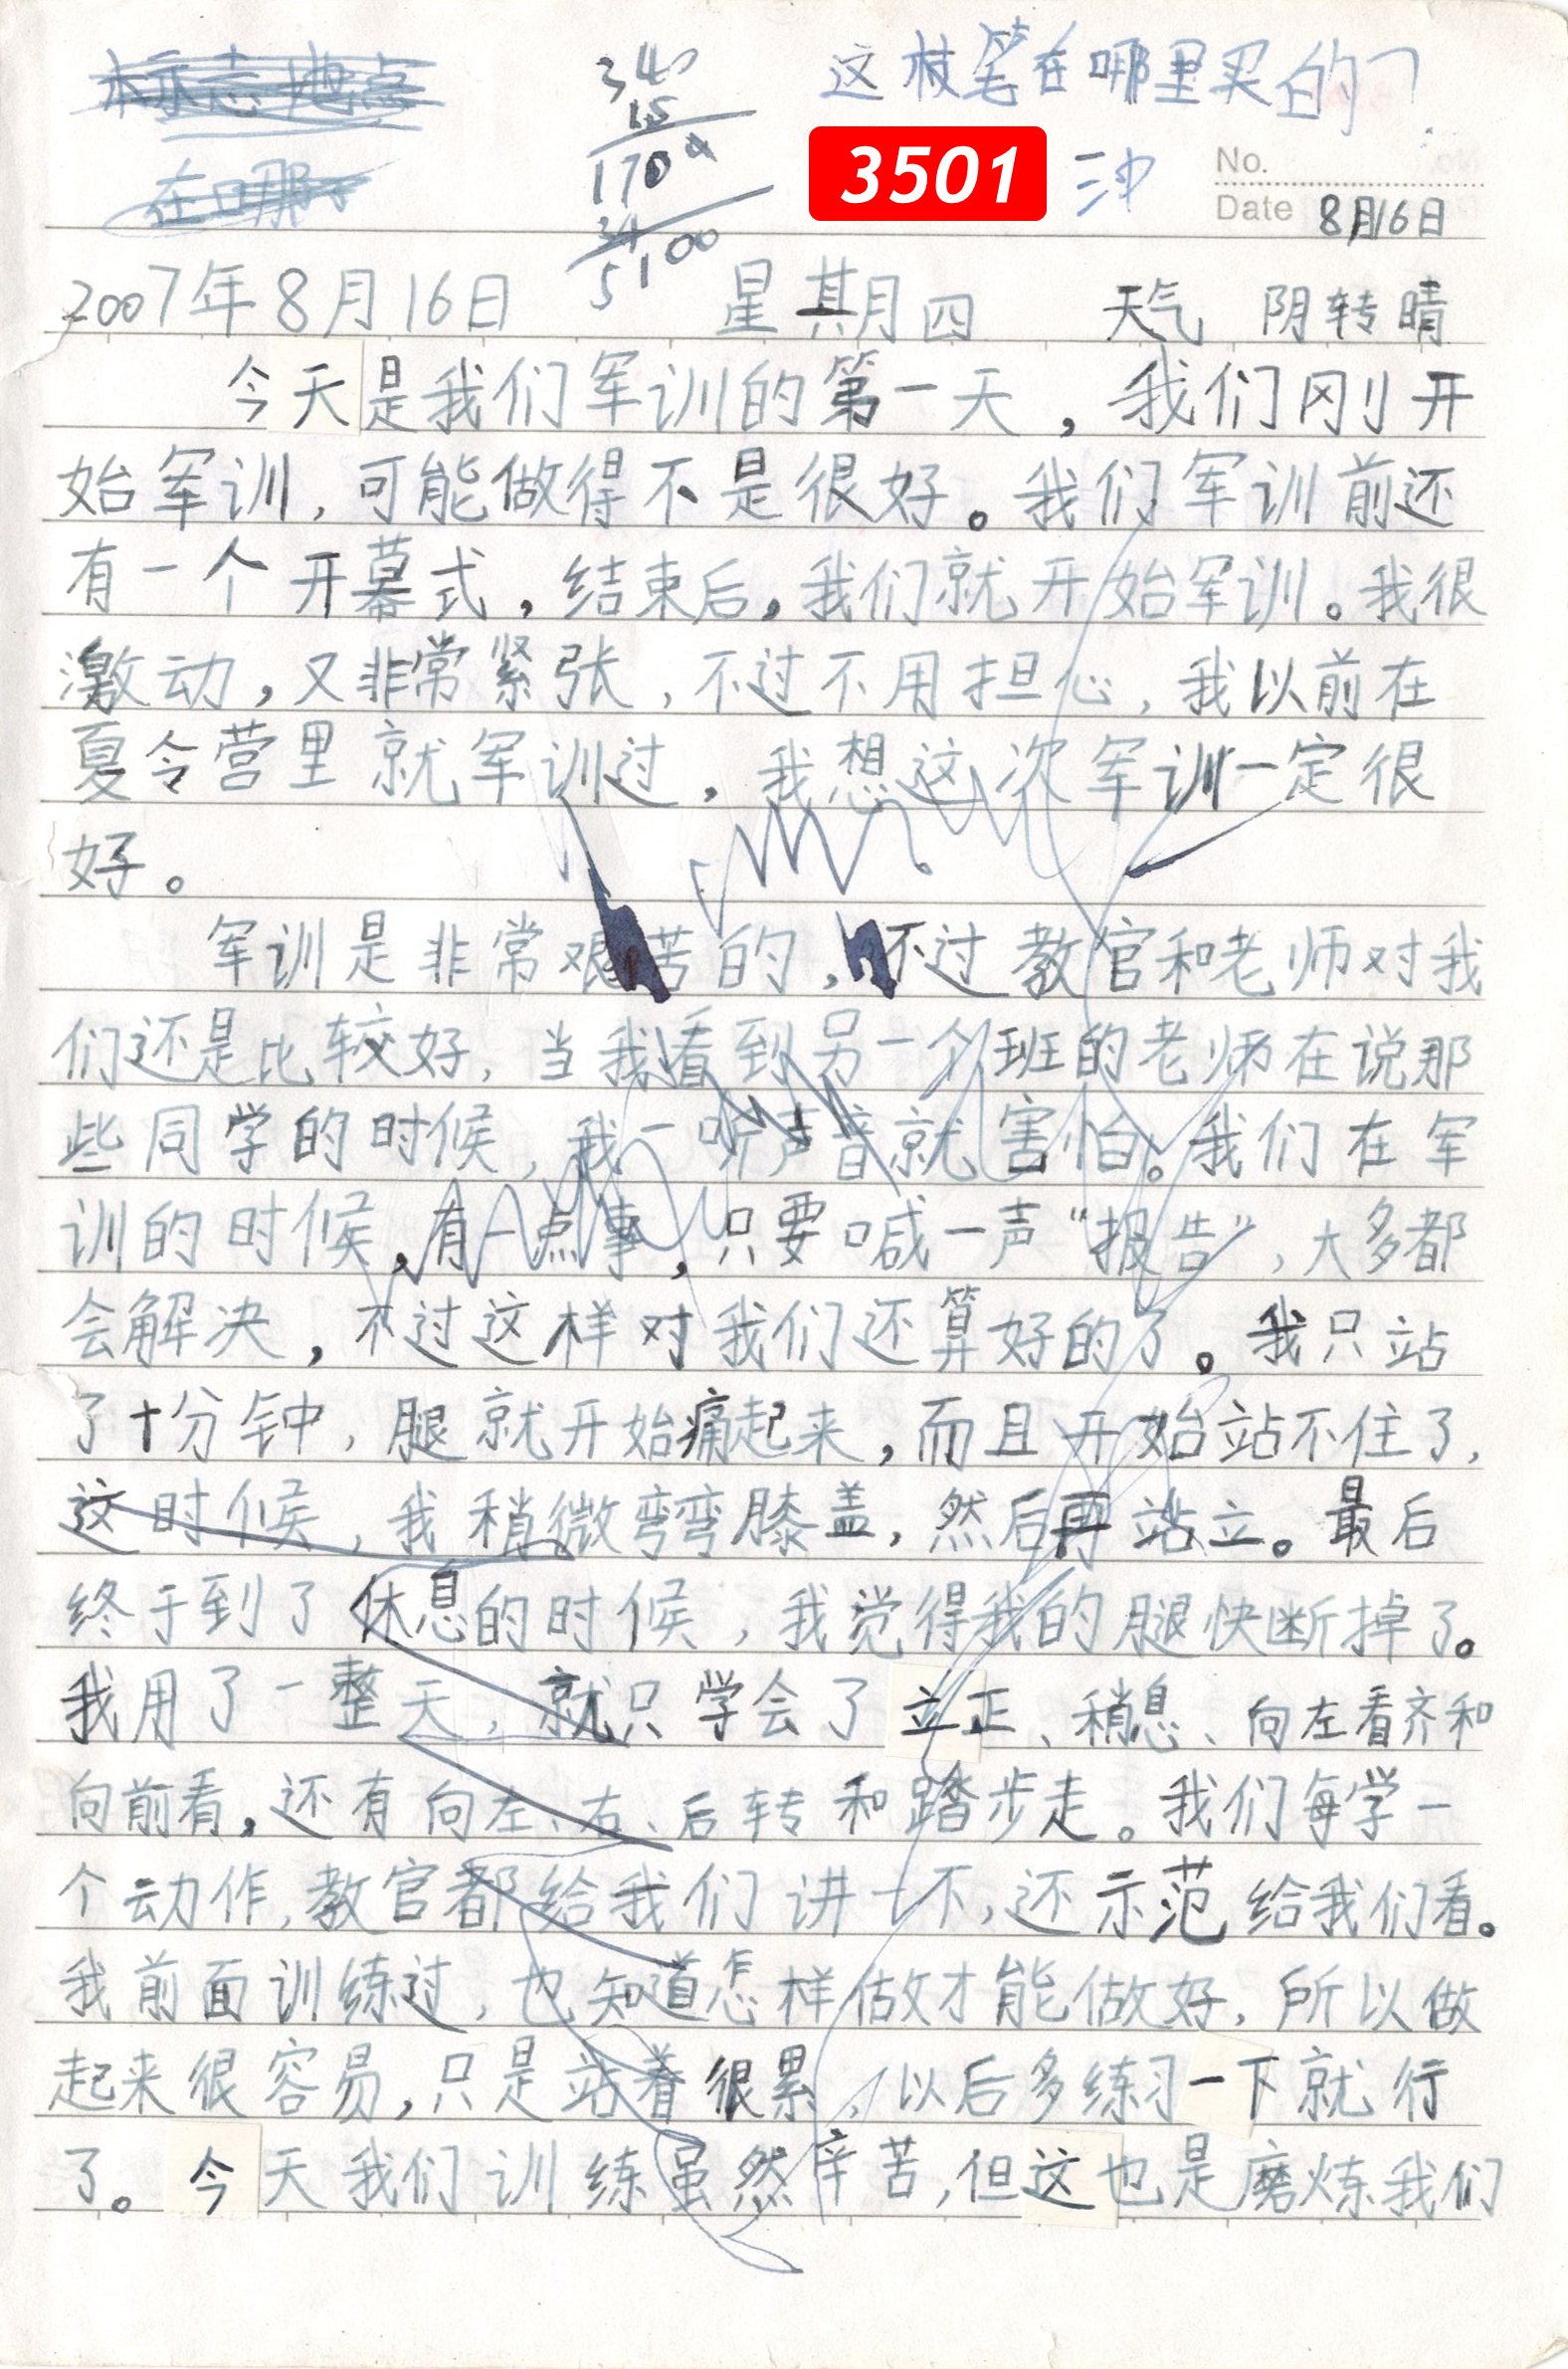 标志地点
在哪
这枝笔在哪里买的?
340
15
170
34
5100
3501
No.
Date 8月16日
2007年8月16日 星期四 天气 阴转晴
今天是我们军训的第一天，我们刚开
始军训，可能做得不是很好。我们军训前还
有一个开幕式，结束后，我们就开始军训。我很
激动，又非常紧张，不过不用担心，我以前在
夏令营里就军训过，我想这次军训一定很
好。
军训是非常艰苦的，不过教官和老师对我
们还是比较好，当我看到另一个班的老师在说那
些同学的时候，我一听声音就害怕。我们在军
训的时候，有一点事，只要喊一声“报告”，大多都
会解决，不过这样对我们还算好的了。我只站
了十分钟，腿就开始痛起来，而且开始站不住了，
这时候，我稍微弯弯膝盖，然后再站立。最后
终于到了休息的时候，我觉得我的腿快断掉了。
我用了一整天，就只学会了立正、稍息、向左看齐和
向前看，还有向左、右、后转和踏步走。我们每学一
个动作，教官都给我们讲一不，还示范给我们看。
我前面训练过，也知道怎样做才能做好，所以做
起来很容易，只是站着很累，以后多练习一下就行
了。今天我们训练虽然辛苦，但这也是磨炼我们